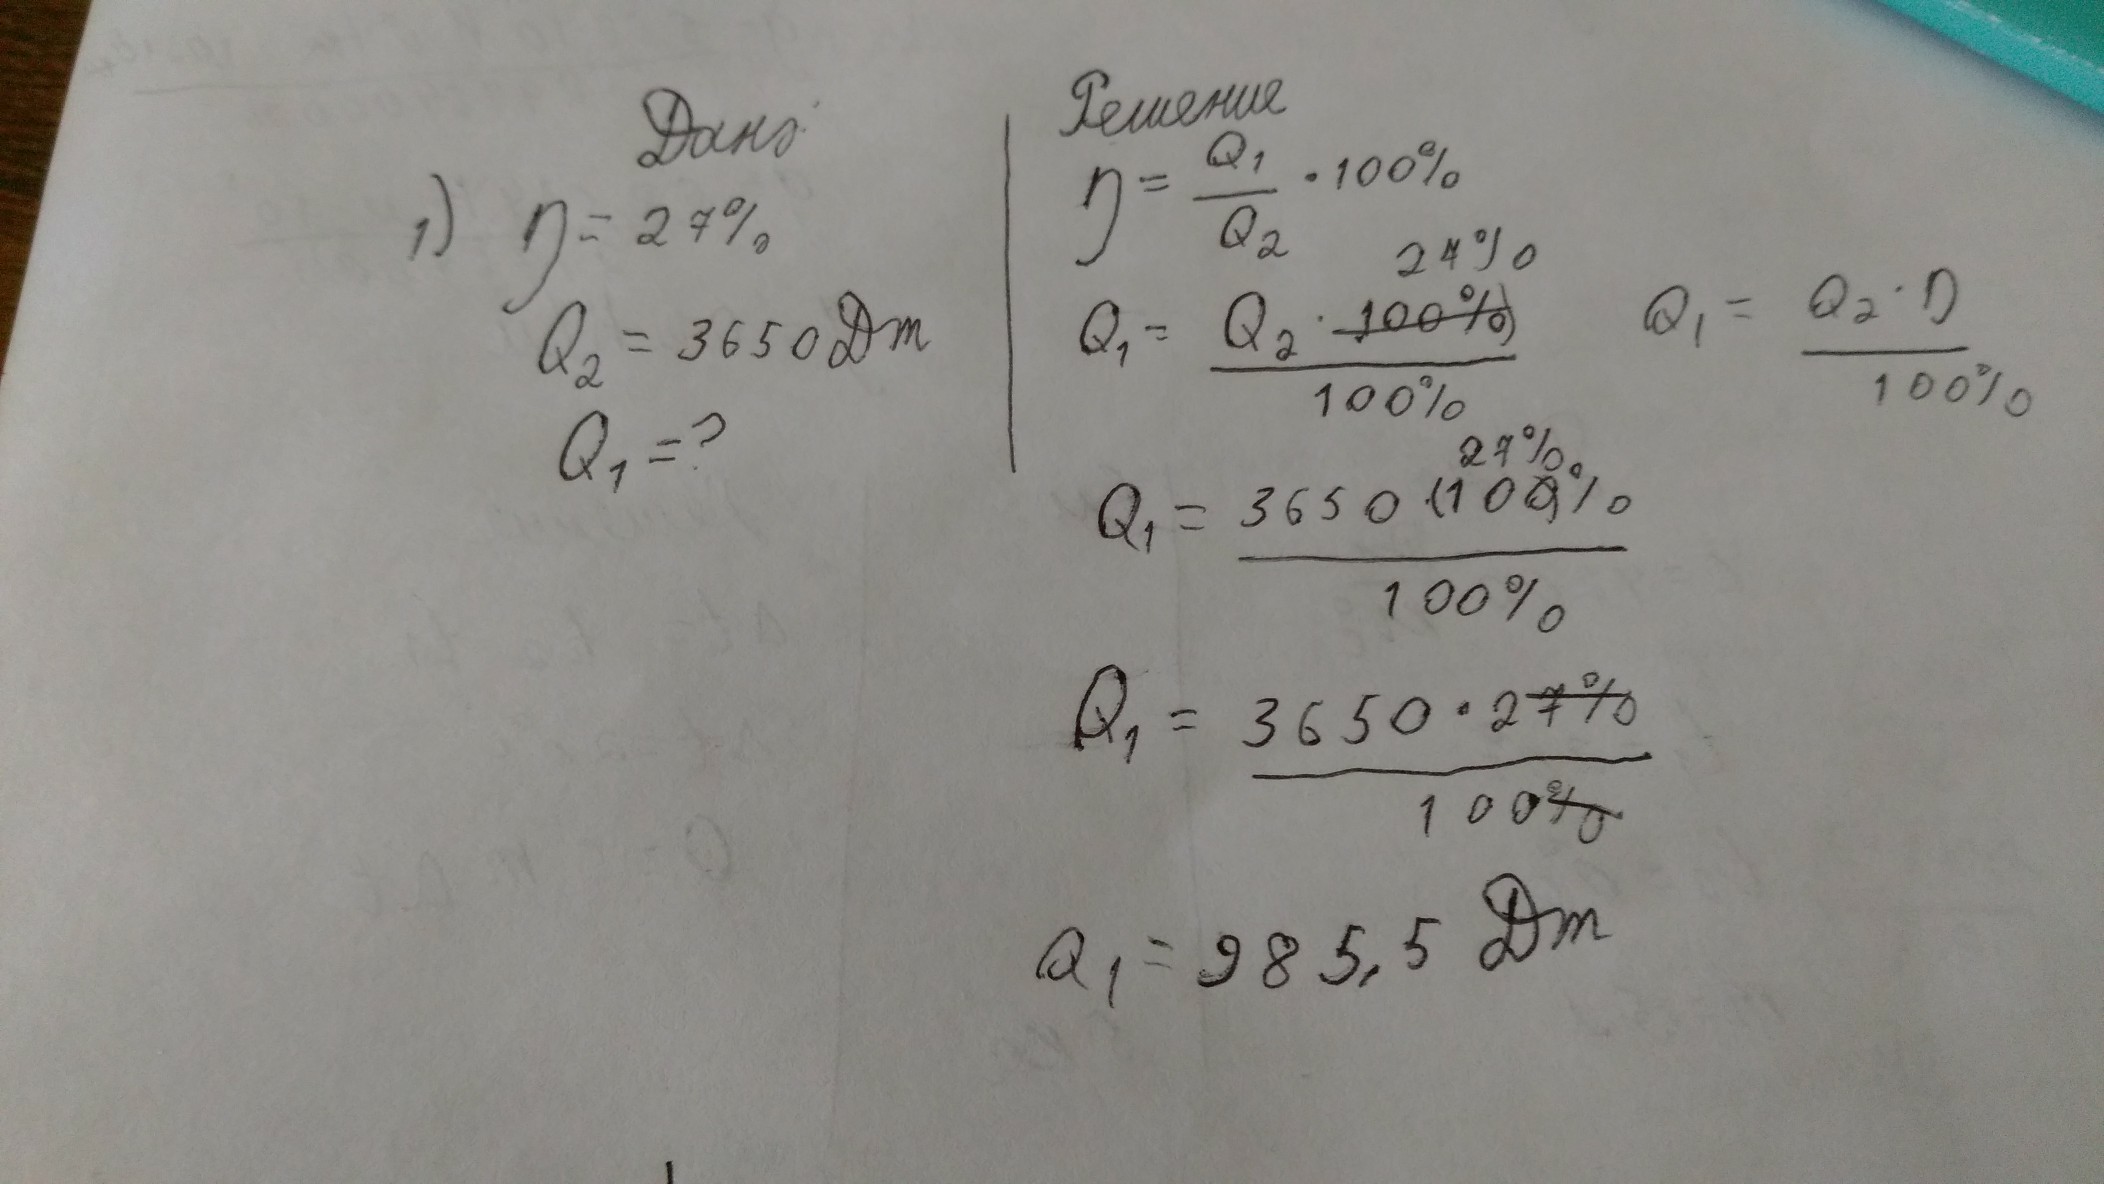 Дано
1) η = 27%
Q2 = 3650 Дж
Q1 = ?
Решение
η = Q1 / Q2 · 100%
27%
Q1 = Q2 · 100% / 100%
Q1 = Q2 · η / 100%
27%
Q1 = 3650 (100)% / 100%
Q1 = 3650 · 27% / 100%
Q1 = 985,5 Дж